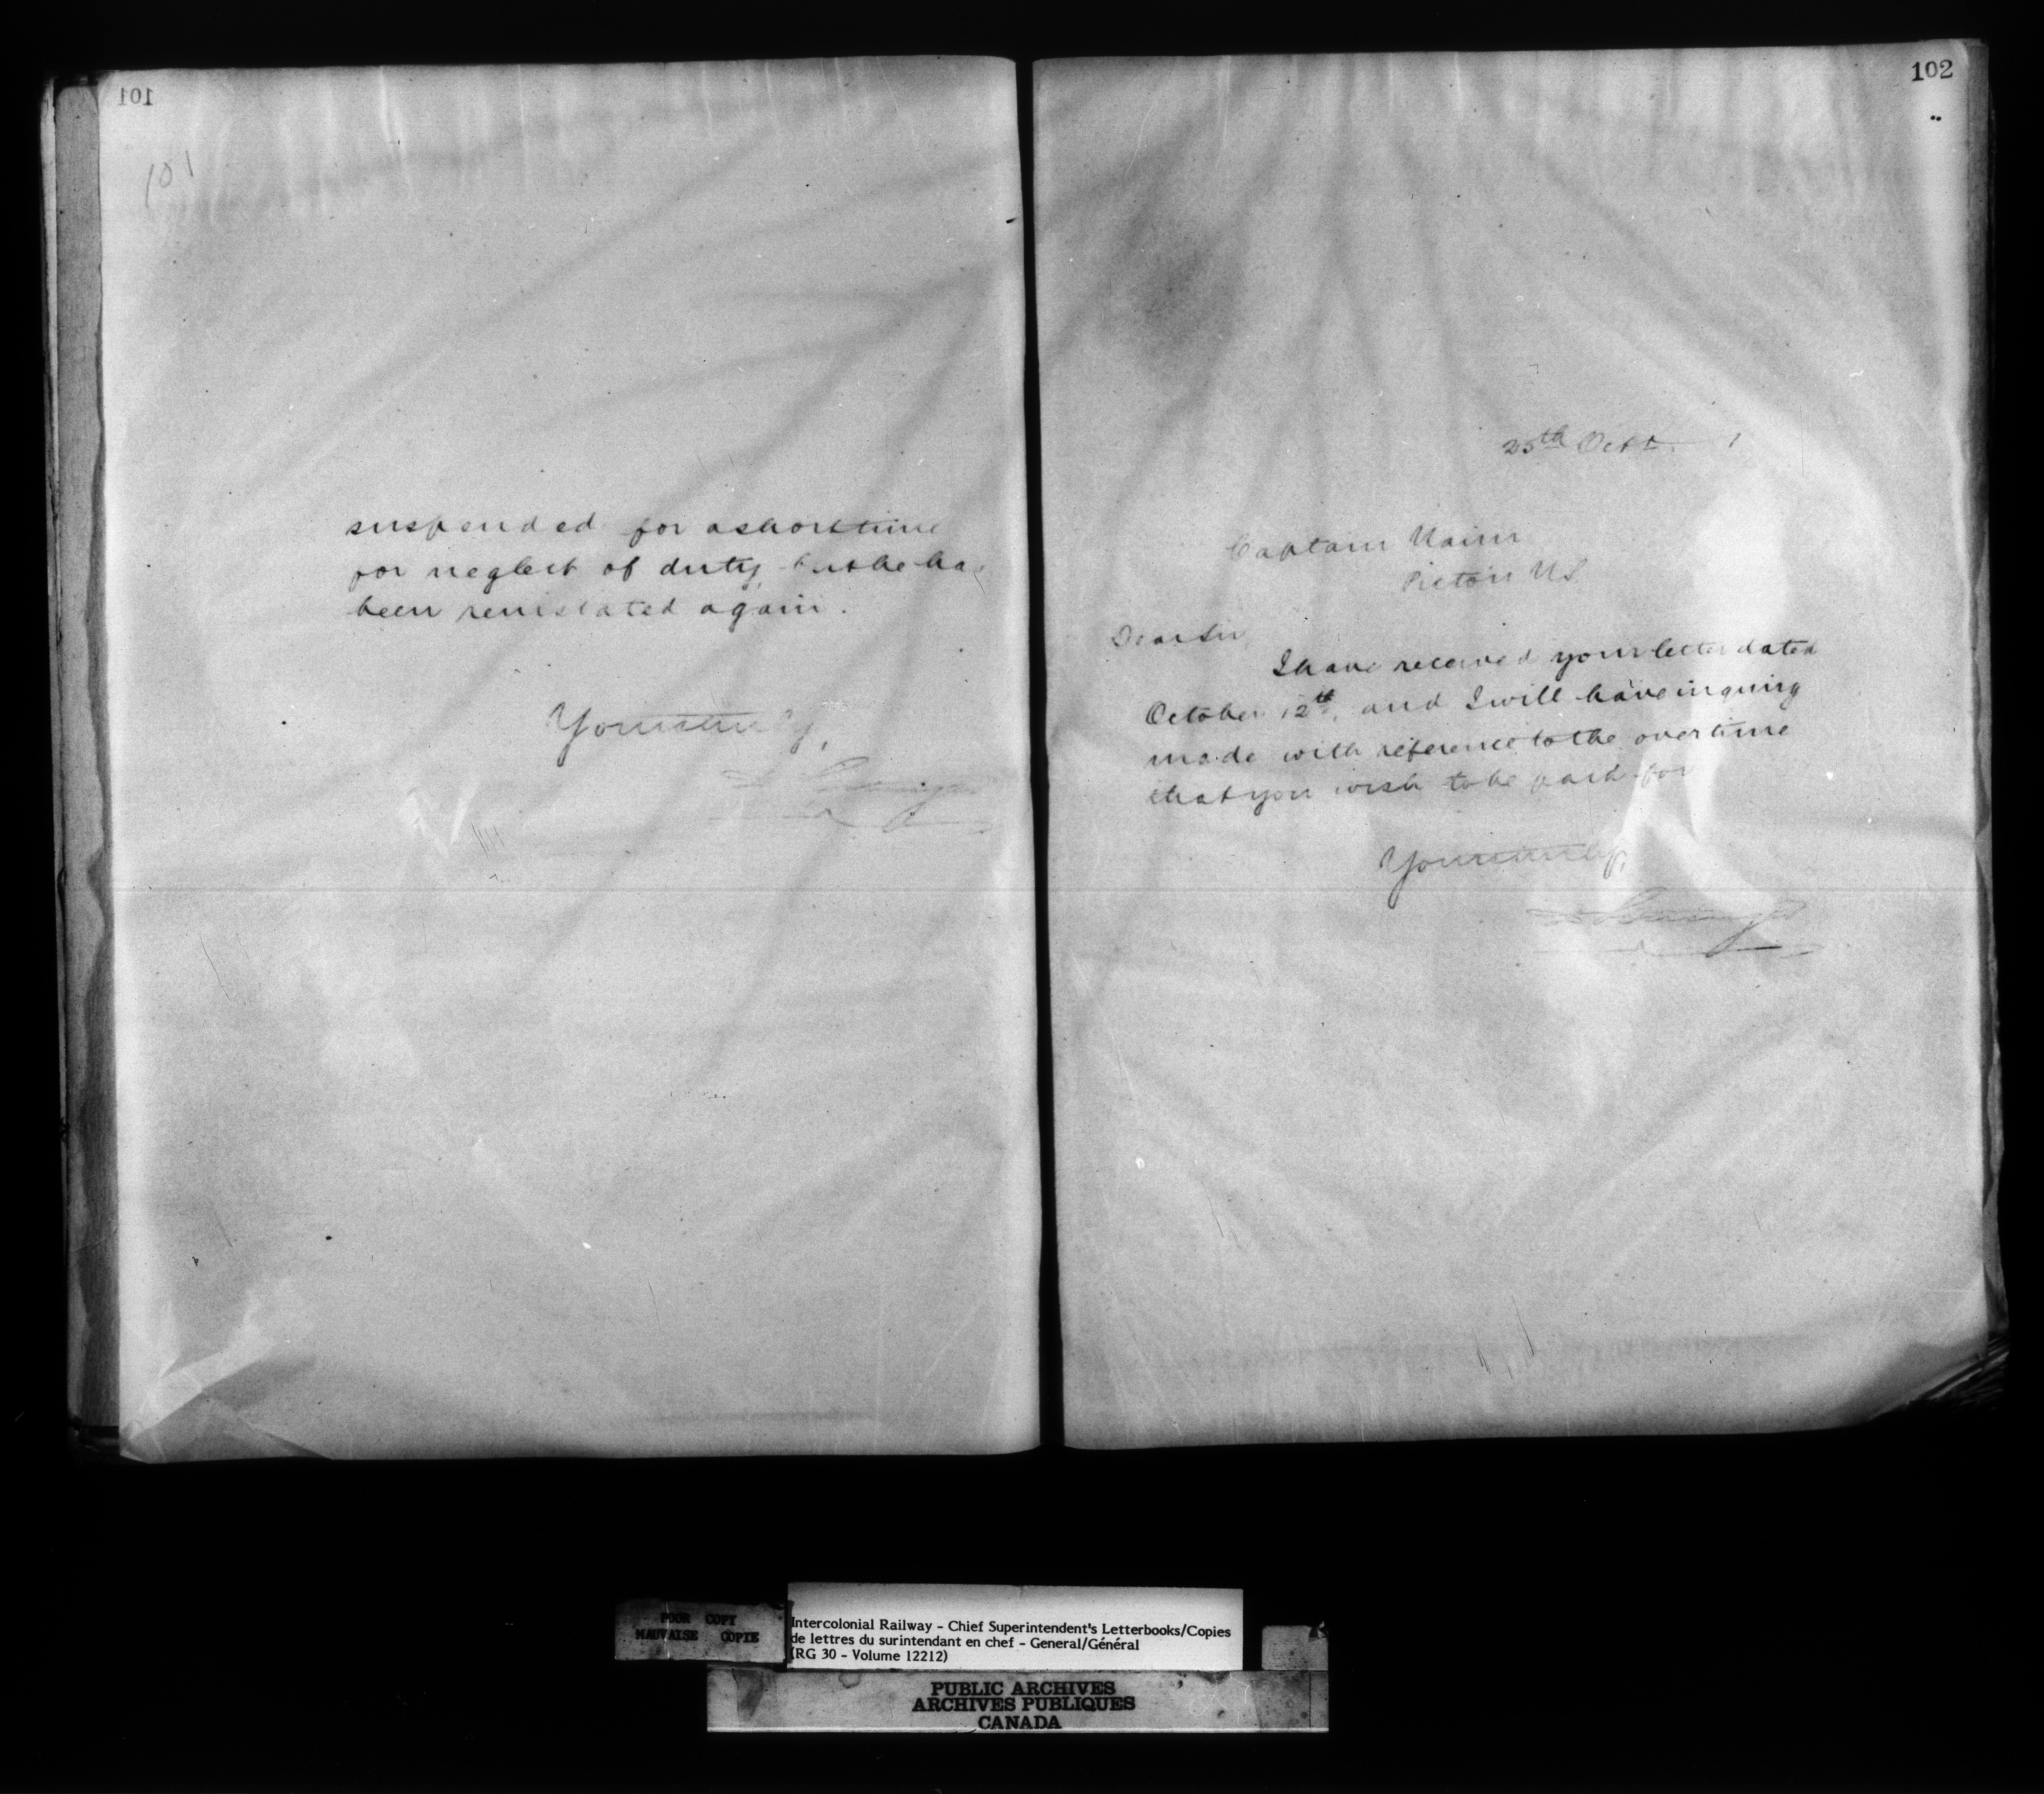 101
101
suspended for a short time
for neglect of duty but he has
been reinstated again.
Yours truly,
102
25th Oct
Captain
Pictou N.S.
Dear Sir,
I have received your letter dated
October 12th, and I will have inquiry
made with reference to the overtime
that you wish to be paid for
Yours truly,
POOR COPY
MAUVAISE COPIE
Intercolonial Railway - Chief Superintendent's Letterbooks/Copies
de lettres du surintendant en chef - General/Général
(RG 30 - Volume 12212)
PUBLIC ARCHIVES
ARCHIVES PUBLIQUES
CANADA